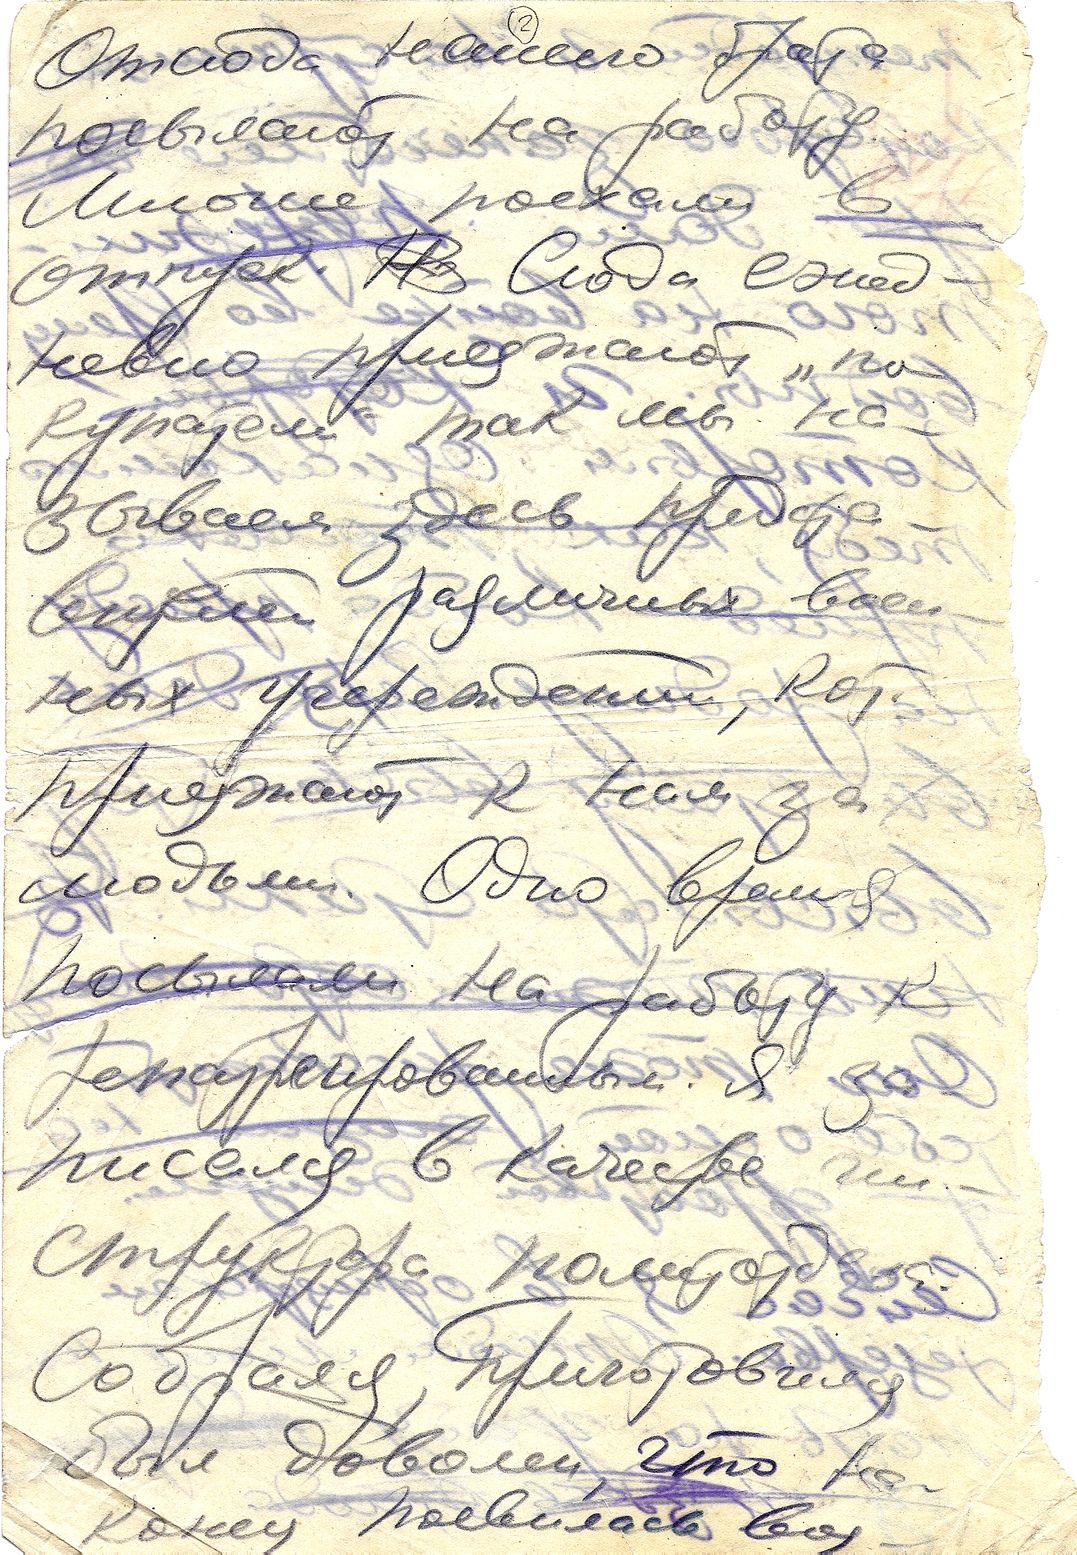 2
Отсюда нашего брата
посылают на работу.
Многие поехали в
отпуск. Сюда ежед-
невно приезжают „по-
купатели" так мы на-
зываем здесь предста-
вителей различных воен-
ных учреждений, кот.
приезжают к нам за
людьми. Одно время
посылали на работу к
репатриированным. Я за-
писался в качестве ин-
структора политотдела.
Собрался, приготовился
был доволен, что на-
конец появилась воз-